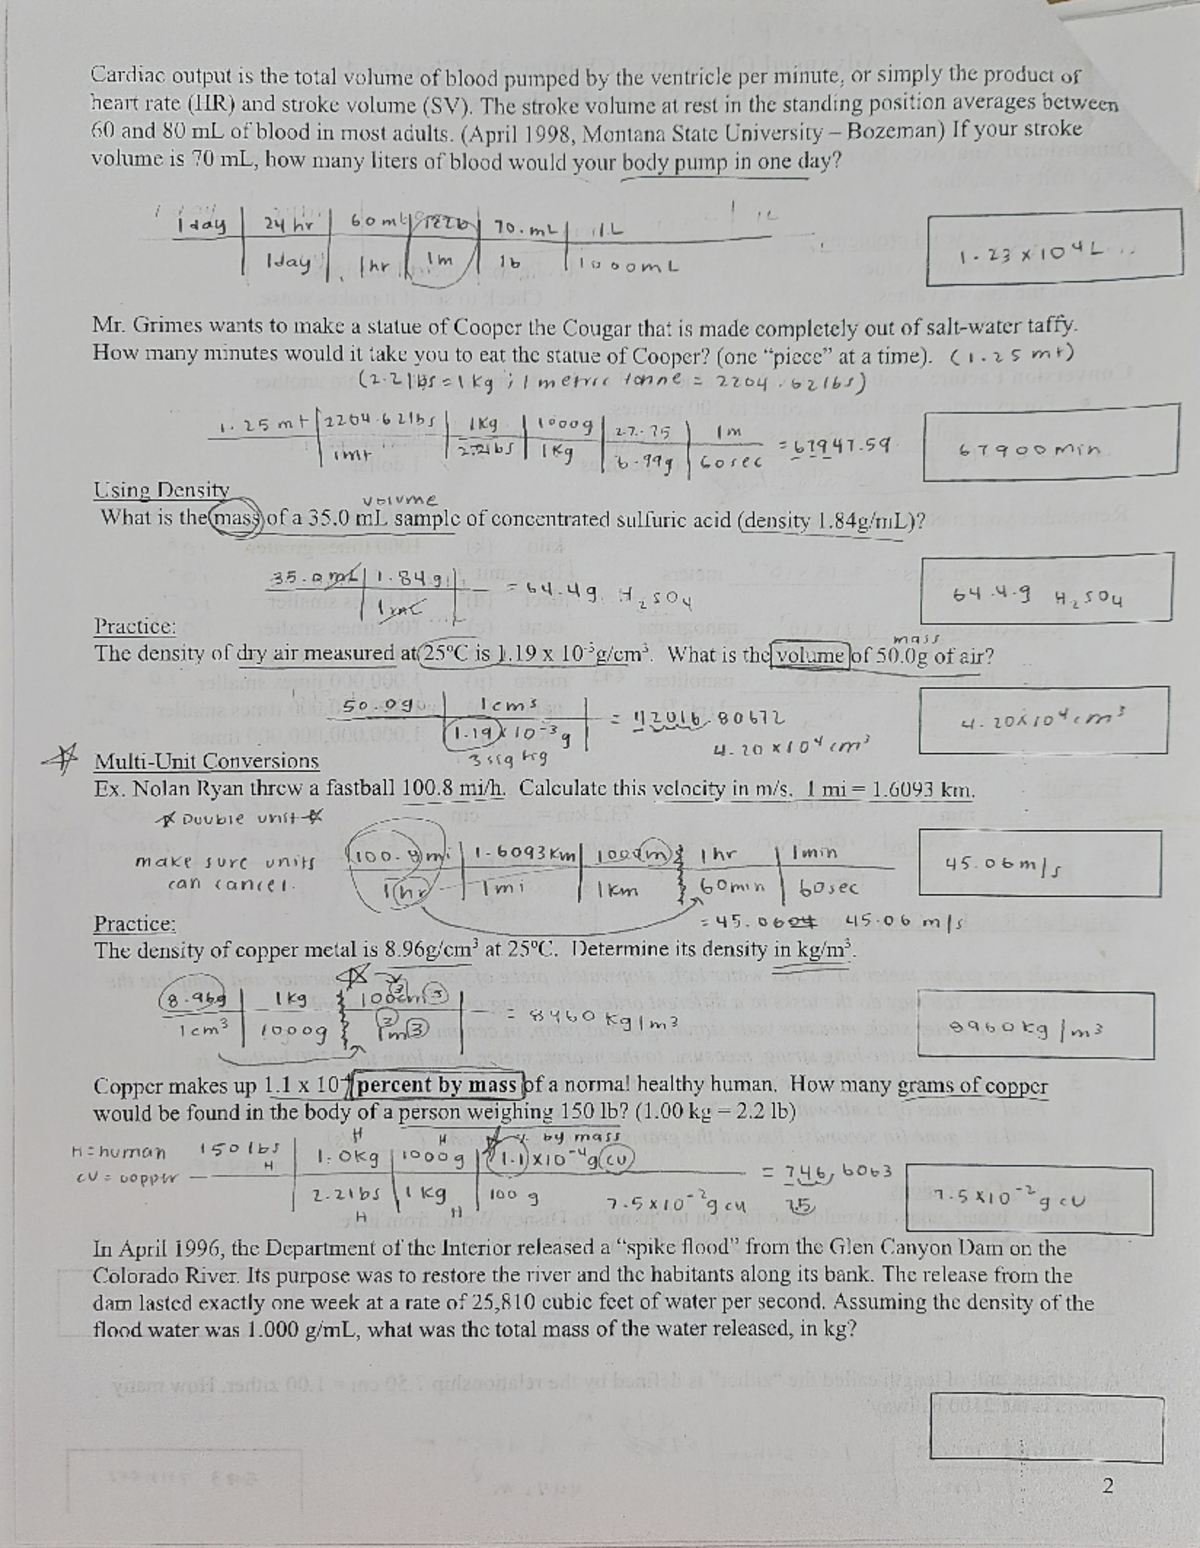 Cardiac output is the total volume of blood pumped by the ventricle per minute, or simply the product of
heart rate (HR) and stroke volume (SV). The stroke volume at rest in the standing position averages between
60 and 80 mL of blood in most adults. (April 1998, Montana State University – Bozeman) If your stroke
volume is 70 mL, how many liters of blood would your body pump in one day?
1day | 24 hr | 60 m | 122b | 70. mL | 1L
1day | 1hr | 1m | 1b | 1000mL
1.23 x 10⁴ L
Mr. Grimes wants to make a statue of Cooper the Cougar that is made completely out of salt-water taffy.
How many minutes would it take you to eat the statue of Cooper? (one “piece” at a time). (1.25 mt)
(2.21bs = 1kg ; 1 metric tonne = 2204.62lbs)
1.25 mt | 2204.62lbs | 1Kg | 1000g | 27.75 | 1m = 67947.59
1mt | 2.2lbs | 1Kg | 6.99g | 60sec
67900 min
Using Density
volume
What is the mass of a 35.0 mL sample of concentrated sulfuric acid (density 1.84g/mL)?
35.0 mL | 1.84g | = 64.4g H₂SO₄
1mL
64.4g H₂SO₄
Practice:
mass
The density of dry air measured at 25°C is 1.19 x 10⁻³g/cm³. What is the volume of 50.0g of air?
50.0g | 1cm³ = 42016.80672
1.19 x 10⁻³g 4.20 x 10⁴ cm³
3 sig fig
4.20x10⁴cm³
Multi-Unit Conversions
Ex. Nolan Ryan threw a fastball 100.8 mi/h. Calculate this velocity in m/s. 1 mi = 1.6093 km.
Double unit
make sure units
can cancel.
100.8mi | 1.6093Km | 1000m | 1hr | 1min
1hr | 1mi | 1km | 60min | 60sec
45.06m/s
= 45.0604 45.06 m/s
Practice:
The density of copper metal is 8.96g/cm³ at 25°C. Determine its density in kg/m³.
8.96g | 1kg | 100³cm³ = 8960 kg/m³
1cm³ | 1000g | 1³m³
8960kg/m³
Copper makes up 1.1 x 10⁻⁴ percent by mass of a normal healthy human. How many grams of copper
would be found in the body of a person weighing 150 lb? (1.00 kg = 2.2 lb)
H = human
Cu = copper
% by mass
150 lbs H | 1.0kg H | 1000g H | 1.1 x 10⁻⁴g Cu = 746,6063
2.2lbs H | 1kg H | 100 g 7.5 x 10⁻²g Cu 7.5
7.5 x 10⁻² g Cu
In April 1996, the Department of the Interior released a “spike flood” from the Glen Canyon Dam on the
Colorado River. Its purpose was to restore the river and the habitants along its bank. The release from the
dam lasted exactly one week at a rate of 25,810 cubic feet of water per second. Assuming the density of the
flood water was 1.000 g/mL, what was the total mass of the water released, in kg?
2